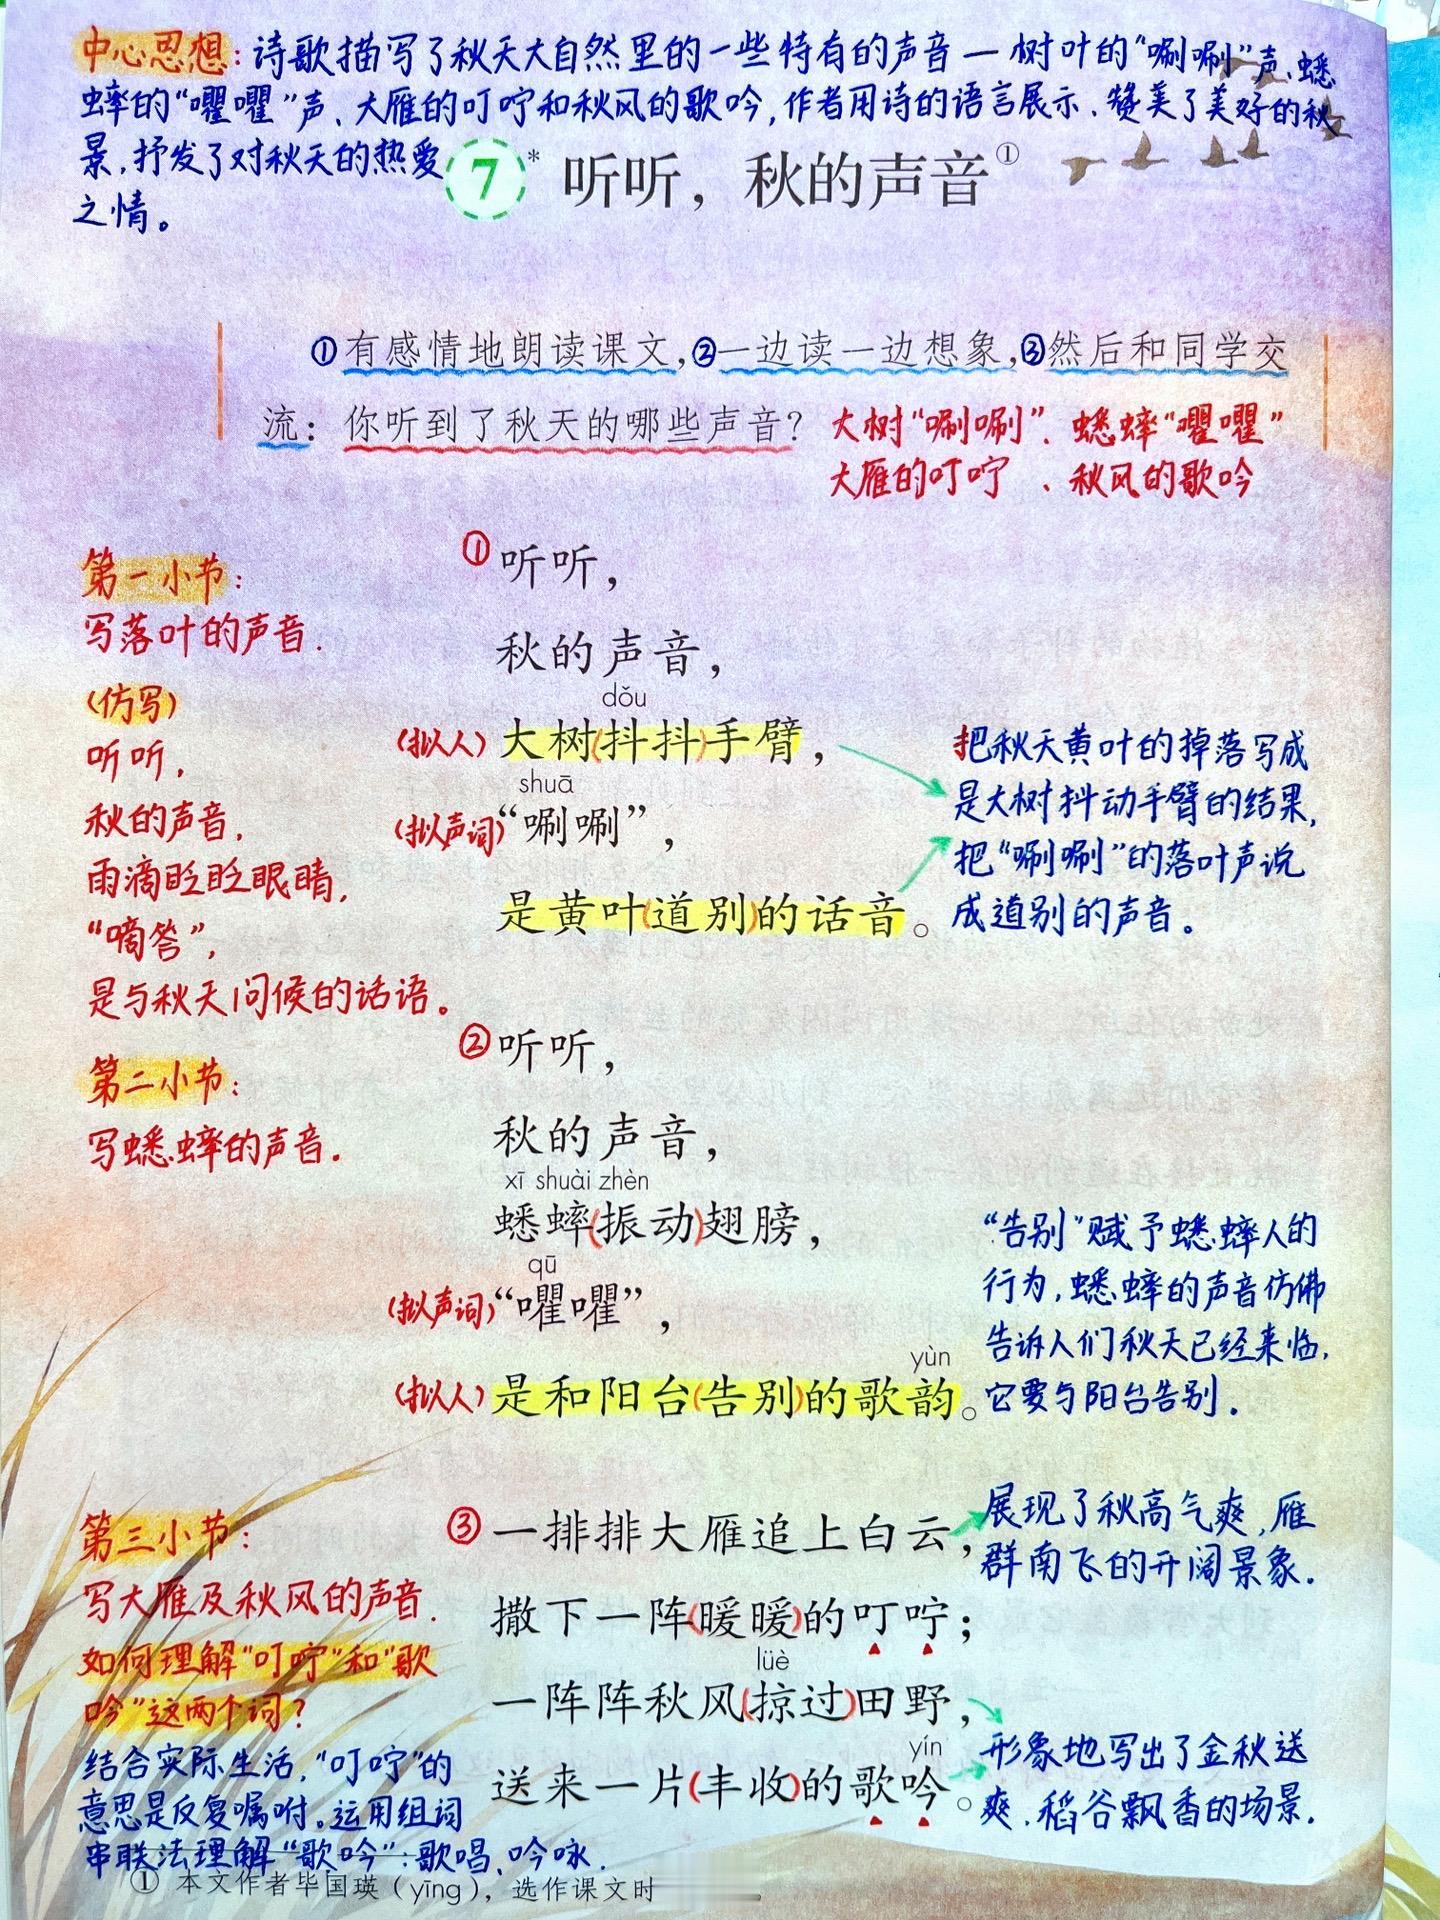 中心思想：诗歌描写了秋天大自然里的一些特有的声音—树叶的“唰唰”声、蟋
蟀的“㘗㘗”声、大雁的叮咛和秋风的歌吟，作者用诗的语言展示、赞美了美好的秋
景，抒发了对秋天的热爱
之情。
7* 听听，秋的声音①
①有感情地朗读课文，②一边读一边想象，③然后和同学交
流：你听到了秋天的哪些声音？
大树“唰唰”、蟋蟀“㘗㘗”
大雁的叮咛、秋风的歌吟
第一小节：
写落叶的声音.
(仿写)
听听，
秋的声音，
雨滴眨眨眼睛，
“嘀答”，
是与秋天问候的话语。
①听听，
秋的声音，
dǒu
(拟人)大树(抖抖)手臂，
shuā
(拟声词)“唰唰”，
是黄叶(道别)的话音。
把秋天黄叶的掉落写成
是大树抖动手臂的结果，
把“唰唰”的落叶声说
成道别的声音。
第二小节：
写蟋蟀的声音.
②听听，
秋的声音，
xī shuài zhèn
蟋蟀(振动)翅膀，
qū
(拟声词)“㘗㘗”，
yùn
(拟人)是和阳台(告别)的歌韵。
“告别”赋予蟋蟀人的
行为，蟋蟀的声音仿佛
告诉人们秋天已经来临，
它要与阳台告别.
第三小节：
写大雁及秋风的声音.
如何理解“叮咛”和“歌
吟”这两个词？
结合实际生活，“叮咛”的
意思是反复嘱咐。运用组词
串联法理解“歌吟”：歌唱、吟咏.
③一排排大雁追上白云，
撒下一阵(暖暖)的叮咛；
lüè
一阵阵秋风(掠过)田野，
yín
送来一片(丰收)的歌吟。
展现了秋高气爽，雁
群南飞的开阔景象.
形象地写出了金秋送
爽、稻谷飘香的场景.
① 本文作者毕国瑛（yīng），选作课文时